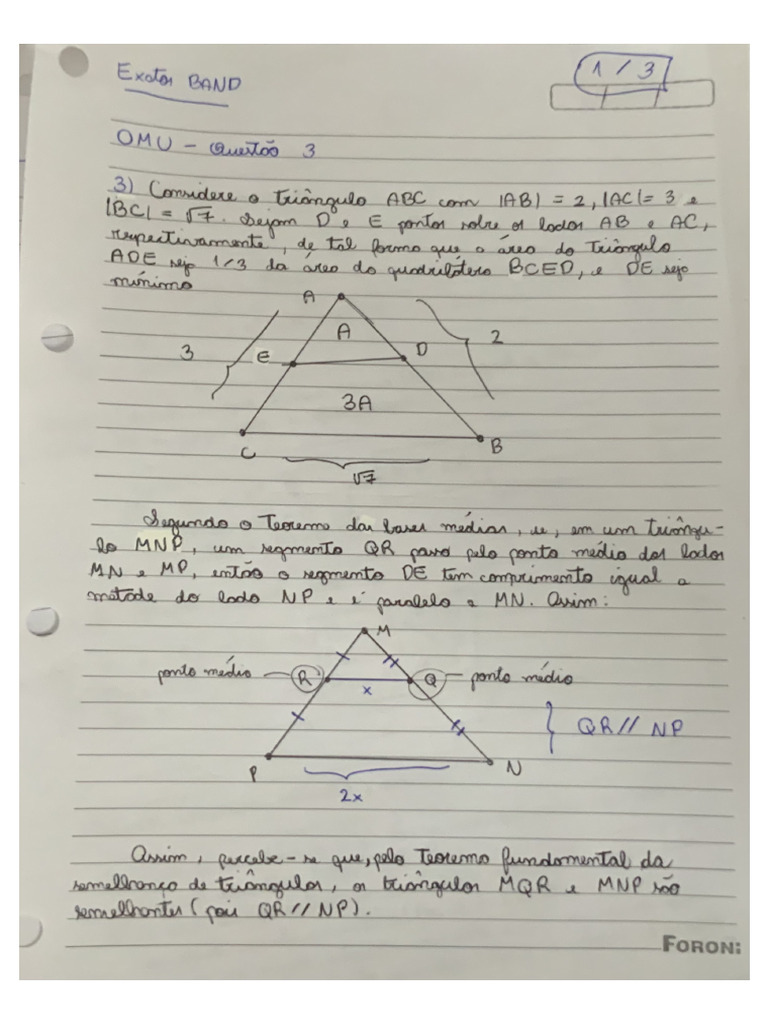 Exatos BAND
1 / 3
OMU - Questão 3
3) Considere o triângulo ABC com |AB| = 2, |AC| = 3 e
|BC| = √7. Sejam D e E pontos sobre os lados AB e AC,
respectivamente, de tal forma que a área do triângulo
ADE seja 1/3 da área do quadrilátero BCED, e DE seja
mínimo
A
A
3
E
D
2
3A
C
B
√7
Segundo o Teorema das bases médias, se, em um triângu-
lo MNP, um segmento QR passa pelo ponto médio dos lados
MN e MP, então o segmento DE tem comprimento igual a
metade do lado NP e é paralelo a MN. Assim:
M
ponto médio
R
Q
ponto médio
x
QR // NP
P
N
2x
Assim, percebe-se que, pelo Teorema fundamental da
semelhança de triângulos, os triângulos MQR e MNP são
semelhantes (pois QR // NP).
FORONI